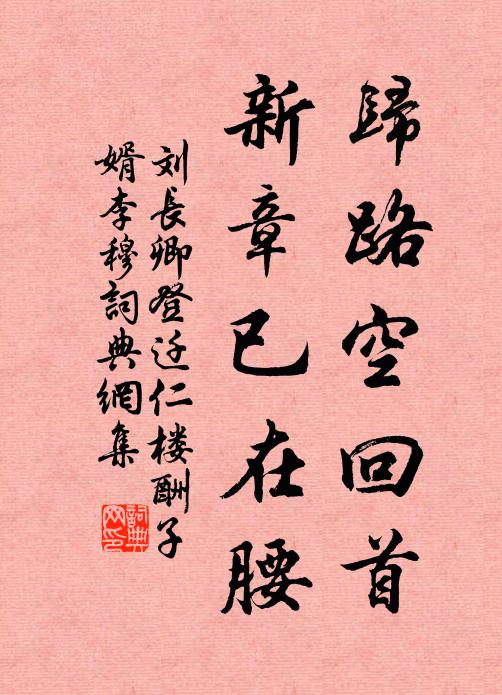 歸路空回首
新章已在腰
刘長卿登迁仁楼酬子
婿李穆詞典網集
詞典网印